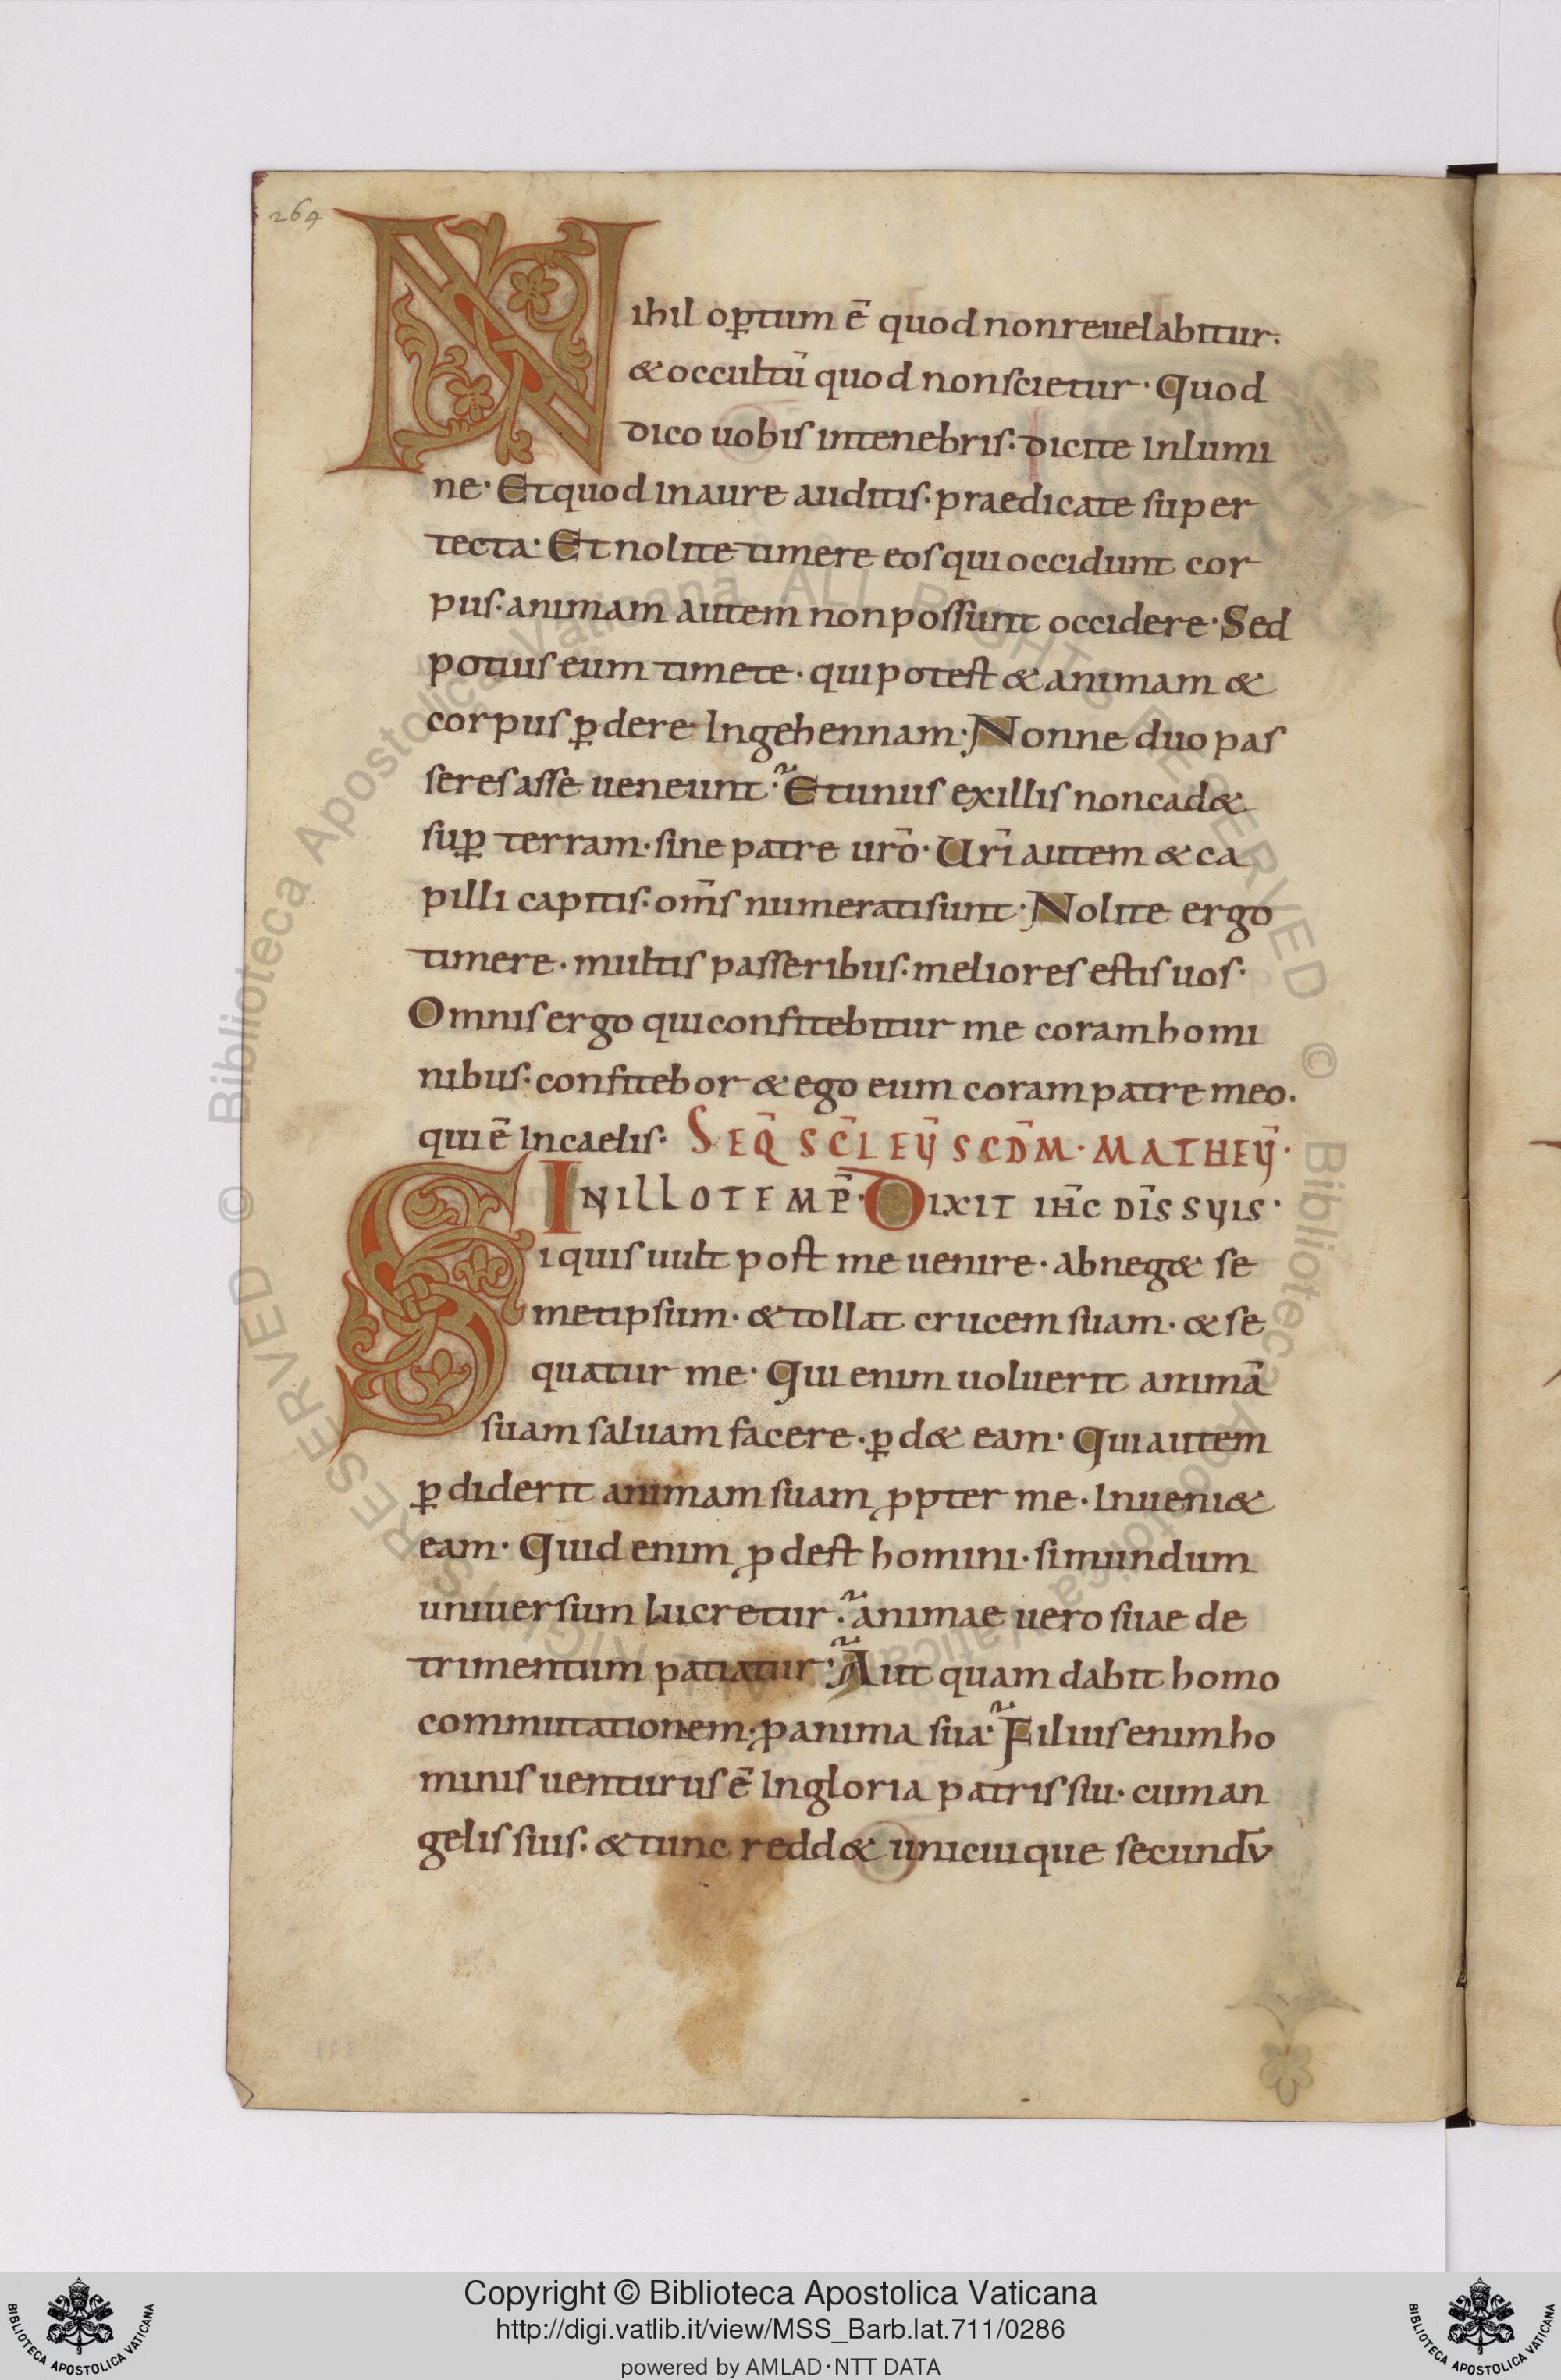 264
Nihil optum ē quod non reuelabitur.
& occultū quod non scietur · Quod
dico uobis in tenebris: dicite In lumi
ne · Et quod in aure auditis · praedicate super
tecta · Et nolite timere eos qui occidunt cor
pus · animam autem non possunt occidere · Sed
potius eum timete · qui potest & animam &
corpus ꝑdere In gehennam · Nonne duo pas
seres asse ueneunt? Et unus ex illis non cad&
suꝑ terram · sine patre ur̄o · Ur̄i autem & ca
pilli capitis · om̄s numerati sunt · Nolite ergo
timere · multis passeribus · meliores estis uos ·
Omnis ergo qui confitebitur me coram homi
nibus · confitebor & ego eum coram patre meo.
qui ē In caelis · SEQ̄ SC̄I EŪ SCDM̄ · MATHEŪ ·
IN ILLO TEMP̄ · DIXIT IH̄C DIS̄ SUIS ·
Si quis uult post me uenire · abneg& se
metipsum · & tollat crucem suam · & se
quatur me · Qui enim uoluerit animā
suam saluam facere · ꝑd& eam · Qui autem
ꝑdiderit animam suam ꝓpter me · Inueni&
eam · Quid enim ꝓdest homini · si mundum
uniuersum lucretur? animae uero suae de
trimentum patiatur? Aut quam dabit homo
commutationem · ꝓ anima sua? Filius enim ho
minis uenturus ē In gloria patris sui · cum an
gelis suis · & tunc redd& unicuique secundū
Copyright © Biblioteca Apostolica Vaticana
http://digi.vatlib.it/view/MSS_Barb.lat.711/0286
powered by AMLAD·NTT DATA
BIBLIOTECA APOSTOLICA VATICANA
BIBLIOTECA APOSTOLICA VATICANA
© Biblioteca Apostolica Vaticana ALL RIGHTS RESERVED © Biblioteca Apostolica Vaticana ALL RIGHTS RESERVED